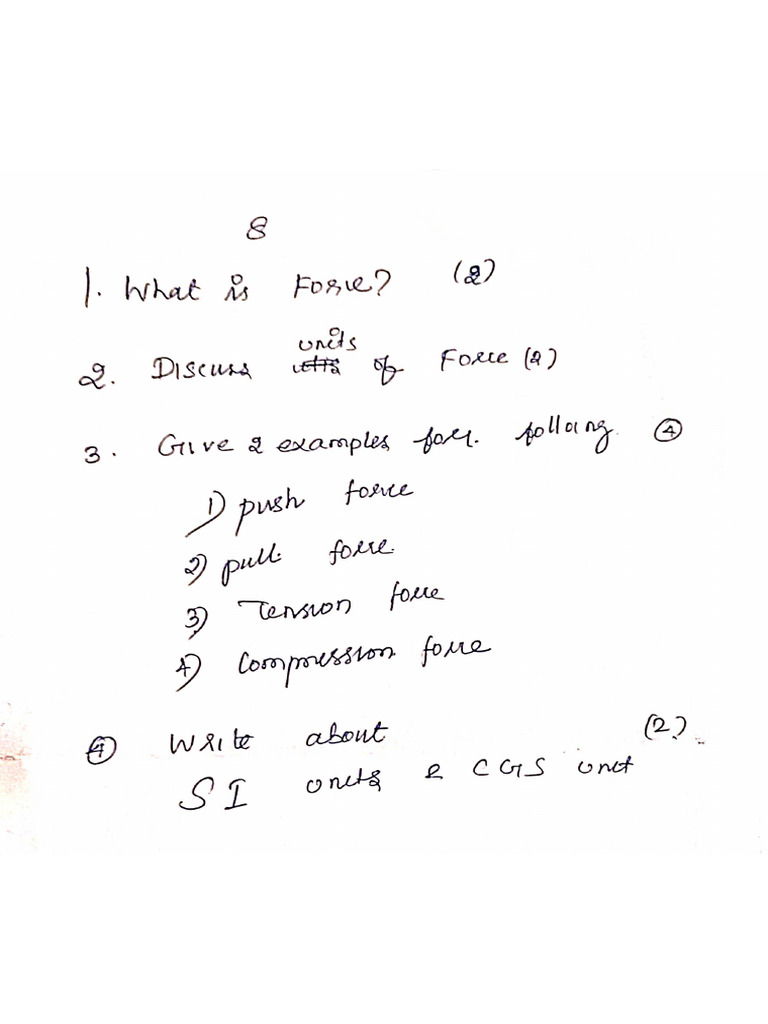 8
1. What is Force? (2)
2. Discuss units of Force (2)
3. Give 2 examples for. folloing. ④
1) push force
2) pull force.
3) Tension force
4) Compression force
④ Write about (2)
SI units & CGS unit